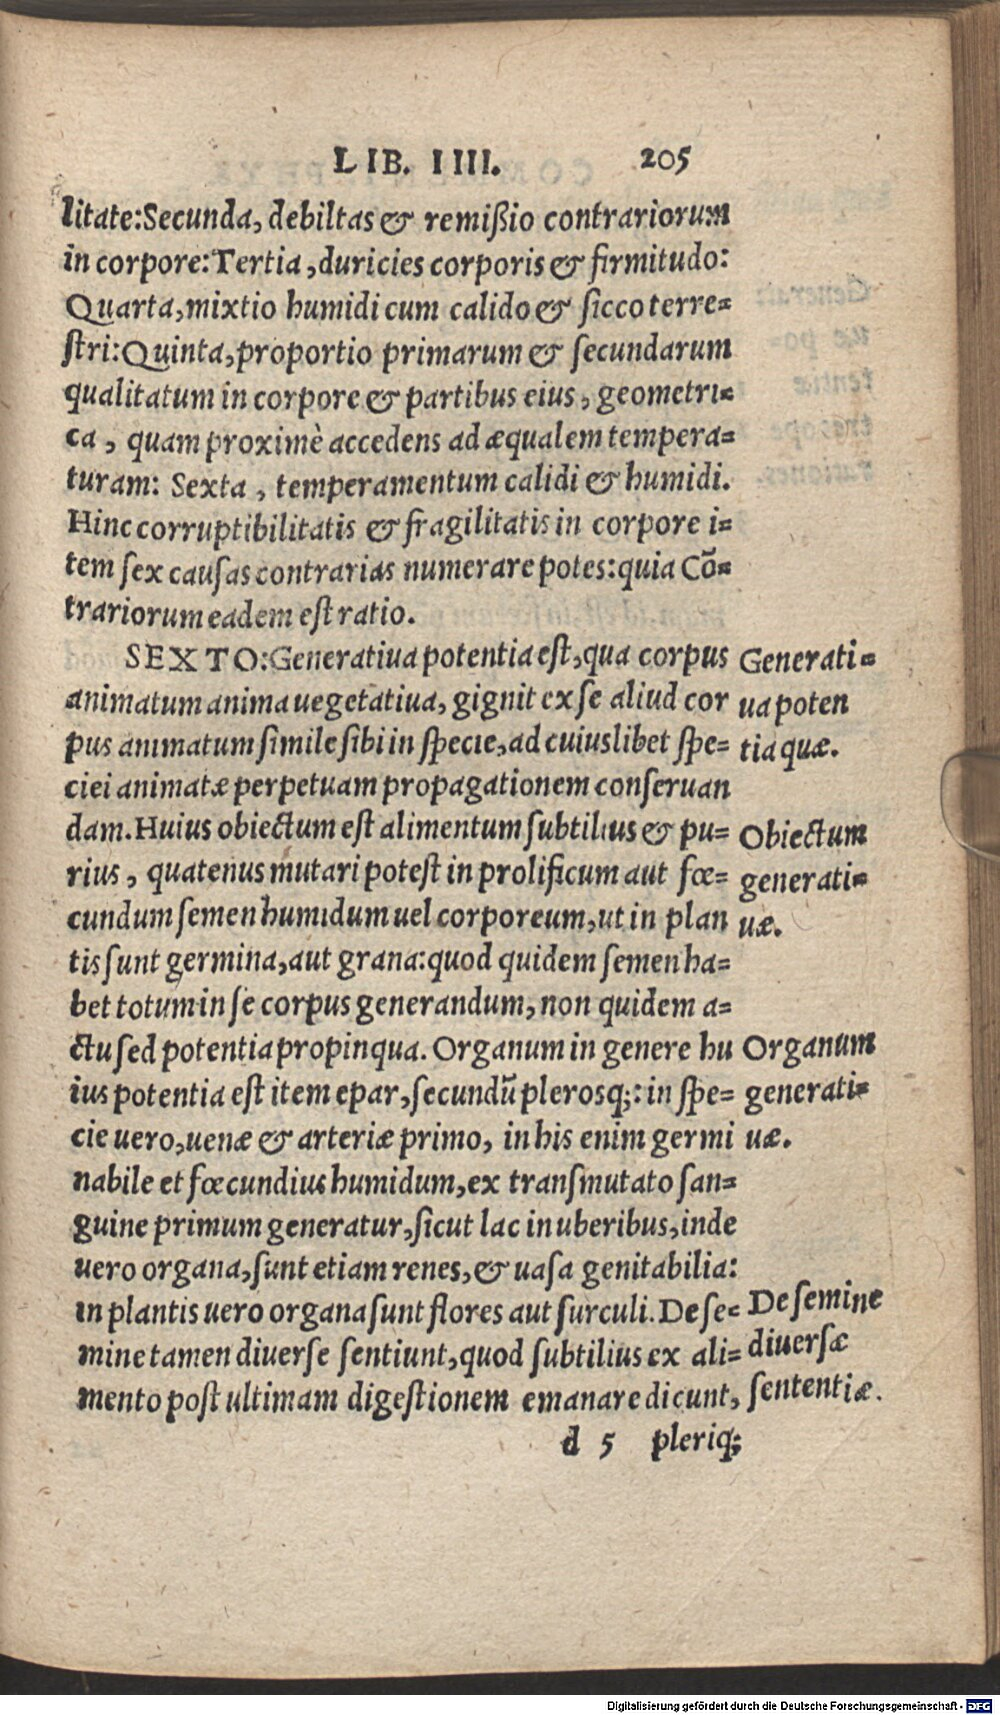 LIB. IIII. 205
litate:Secunda, debiltas & remißio contrariorum
in corpore:Tertia, duricies corporis & firmitudo:
Quarta, mixtio humidi cum calido & sicco terre=
stri:Quinta, proportio primarum & secundarum
qualitatum in corpore & partibus eius, geometri=
ca, quam proximè accedens ad æqualem tempera=
turam: Sexta, temperamentum calidi & humidi.
Hinc corruptibilitatis & fragilitatis in corpore i=
tem sex causas contrarias numerare potes:quia Cō=
trariorum eadem est ratio.
SEXTO:Generatiua potentia est, qua corpus
animatum anima uegetatiua, gignit ex se aliud cor
pus animatum simile sibi in specie, ad cuiuslibet spe=
ciei animatæ perpetuam propagationem conseruan
dam. Huius obiectum est alimentum subtilius & pu=
rius, quatenus mutari potest in prolificum aut fœ=
cundum semen humidum uel corporeum, ut in plan
tis sunt germina, aut grana:quod quidem semen ha=
bet totum in se corpus generandum, non quidem a=
ctu sed potentia propinqua. Organum in genere hu
ius potentia est item epar, secundū plerosq;: in spe=
cie uero, uenæ & arteriæ primo, in his enim germi
nabile et fœcundius humidum, ex transmutato san=
guine primum generatur, sicut lac in uberibus, inde
uero organa, sunt etiam renes, & uasa genitabilia:
in plantis uero organa sunt flores aut surculi. De se=
mine tamen diuerse sentiunt, quod subtilius ex ali=
mento post ultimam digestionem emanare dicunt,
d 5 pleriq;
Generati=
ua poten
tia quæ.
Obiectum
generati=
uæ.
Organum
generati=
uæ.
De semine
diuersæ
sententiæ.
Digitalisierung gefördert durch die Deutsche Forschungsgemeinschaft - DFG